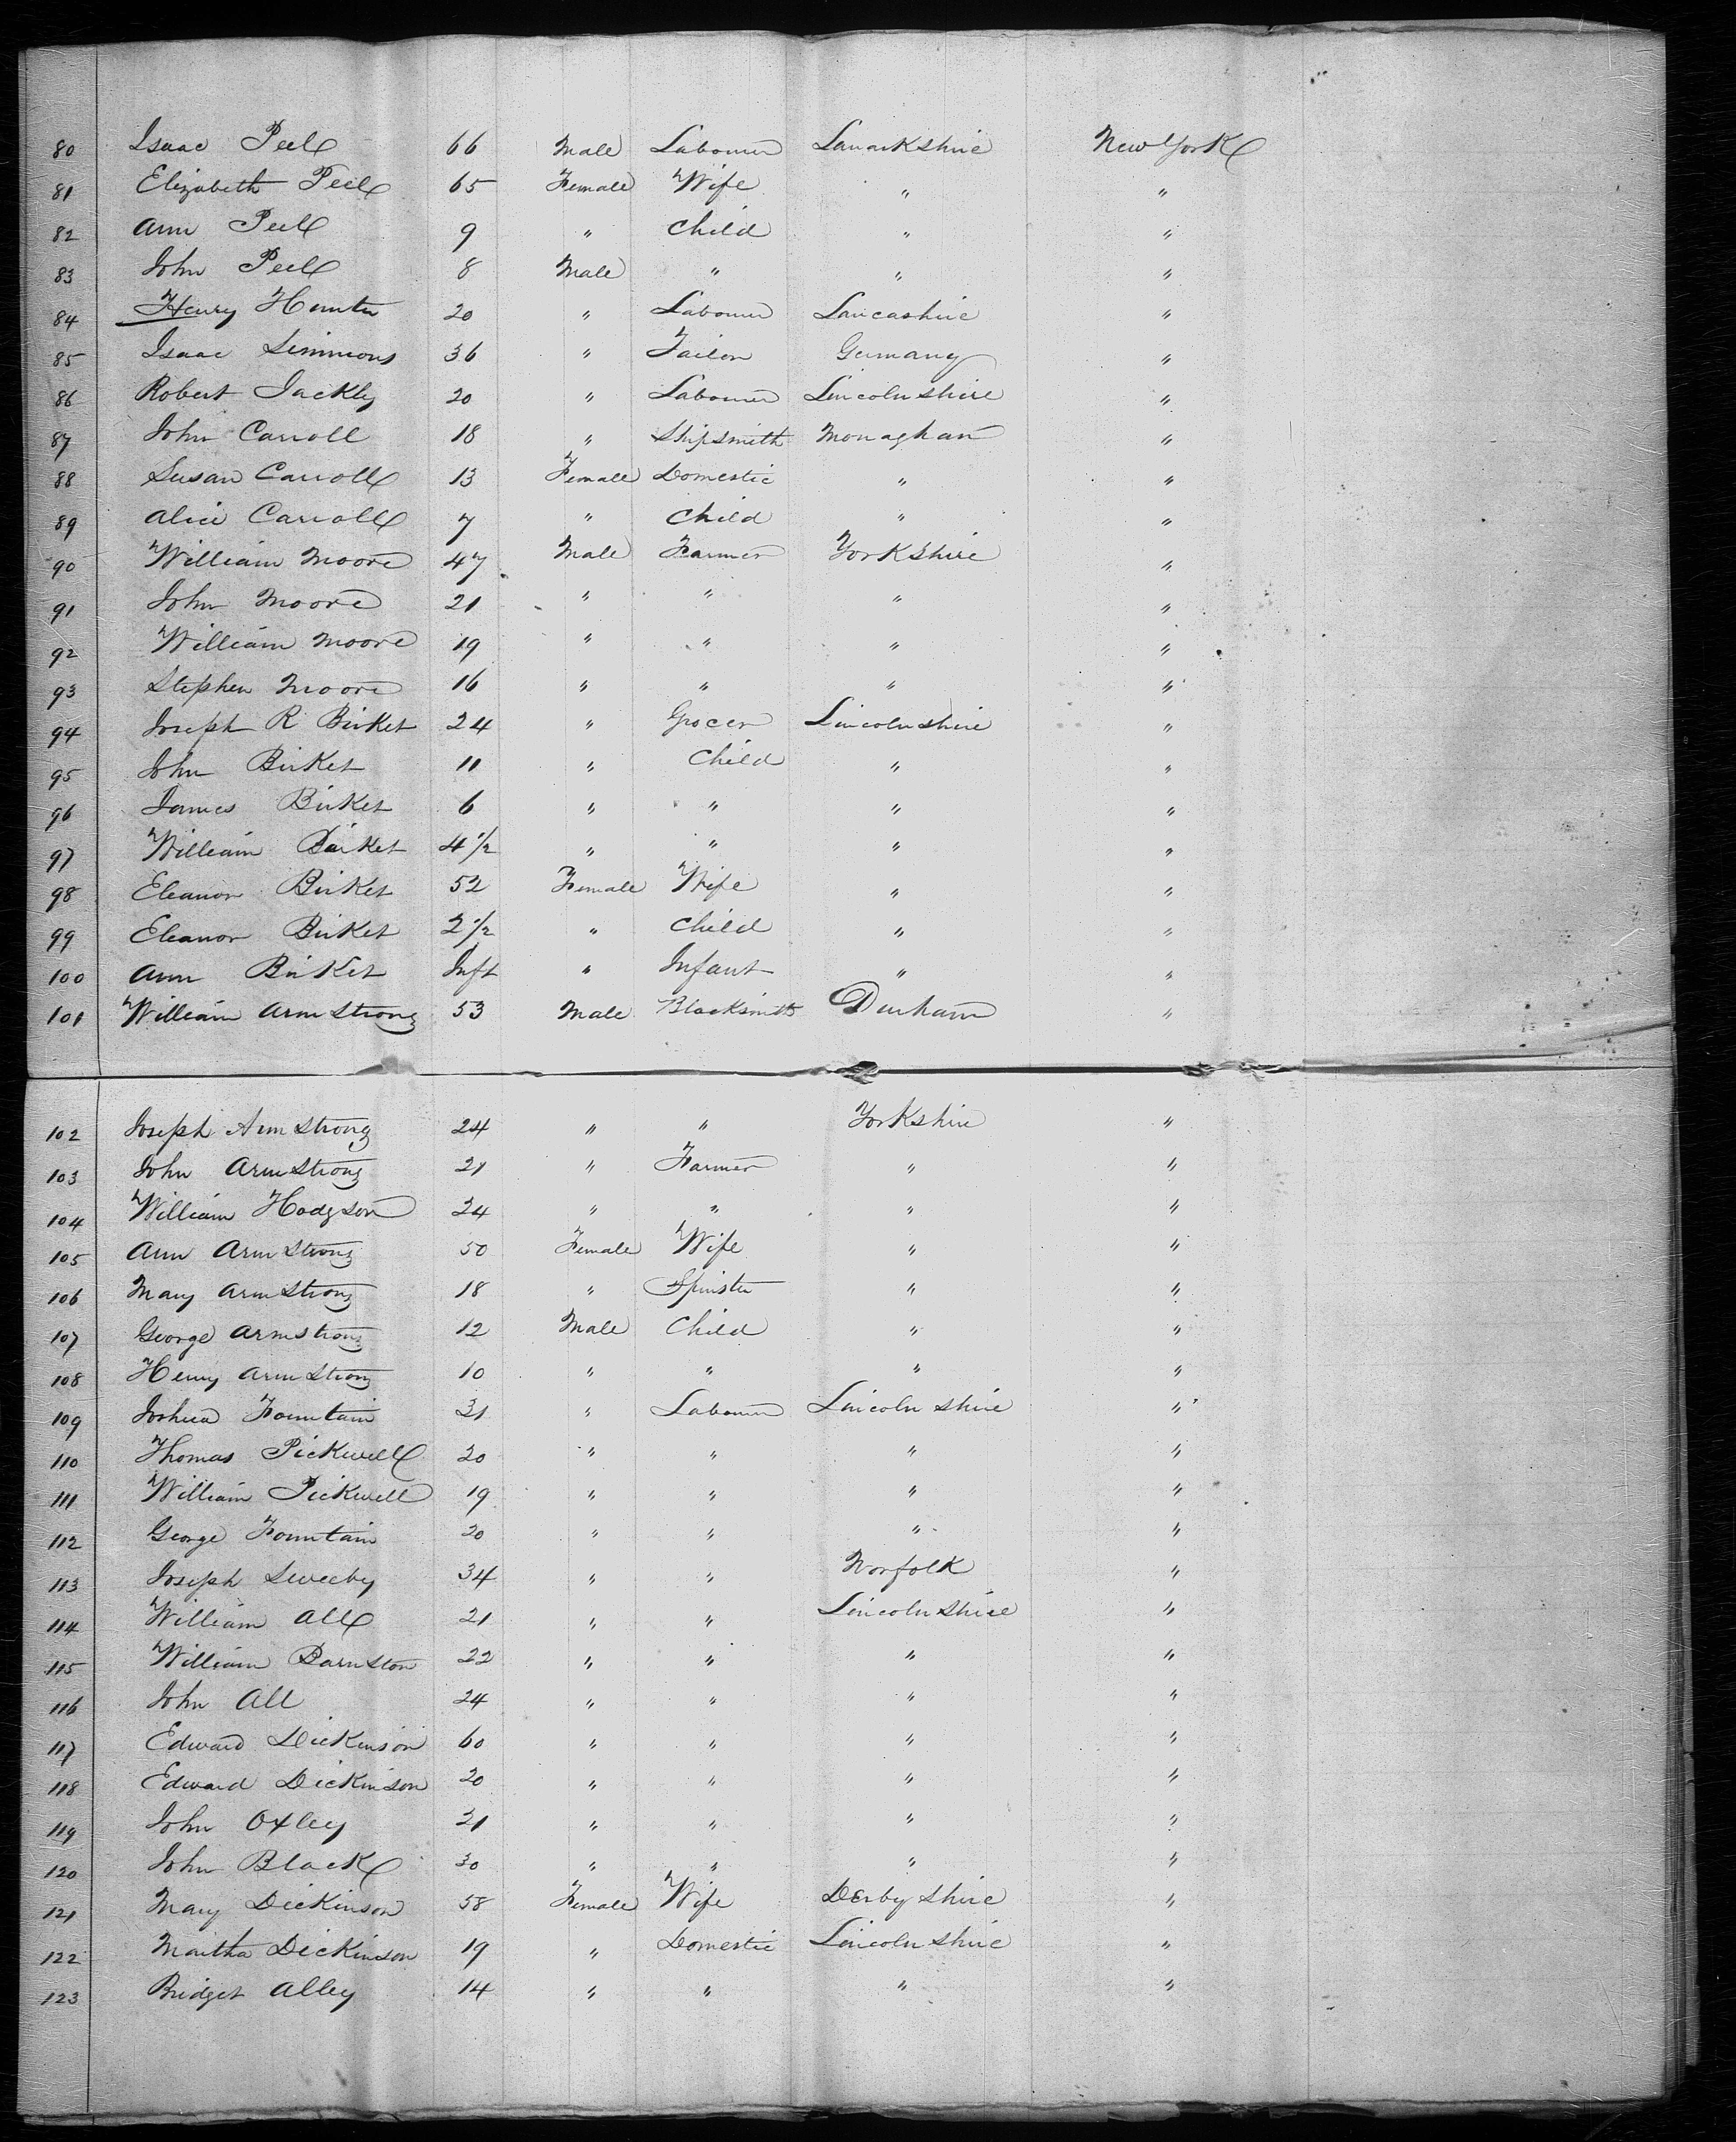 80 Isaac Peel 66 Male Labourer Lanarkshire New York
81 Elizabeth Peel 65 Female Wife " "
82 Ann Peel 9 " Child " "
83 John Peel 8 Male " " "
84 Henry Hunter 20 " Labourer Lancashire "
85 Isaac Simmons 36 " Tailor Germany "
86 Robert Jackly 20 " Labourer Lincolnshire "
87 John Carroll 18 " Shipsmith Monaghan "
88 Susan Carroll 13 Female Domestic " "
89 Alice Carroll 7 " Child " "
90 William Moore 47 Male Farmer Yorkshire "
91 John Moore 21 " " " "
92 William Moore 19 " " " "
93 Stephen Moore 16 " " " "
94 Joseph R Birket 24 " Grocer Lincolnshire "
95 John Birket 11 " Child " "
96 James Birket 6 " " " "
97 William Birket 4½ " " " "
98 Eleanor Birket 52 Female Wife " "
99 Eleanor Birket 2½ " Child " "
100 Ann Birket Inft " Infant " "
101 William Armstrong 53 Male Blacksmith Durham "
102 Joseph Armstrong 24 " " Yorkshire "
103 John Armstrong 21 " Farmer " "
104 William Hodgson 24 " " " "
105 Ann Armstrong 50 Female Wife " "
106 Mary Armstrong 18 " Spinster " "
107 George Armstrong 12 Male Child " "
108 Henry Armstrong 10 " " " "
109 Joshua Fountain 31 " Labourer Lincolnshire "
110 Thomas Pickwell 20 " " " "
111 William Pickwell 19 " " " "
112 George Fountain 20 " " " "
113 Joseph Sweeby 34 " " Norfolk "
114 William All 21 " " Lincolnshire "
115 William Barnston 22 " " " "
116 John All 24 " " " "
117 Edward Dickinson 60 " " " "
118 Edward Dickinson 20 " " " "
119 John Oxley 21 " " " "
120 John Black 30 " " " "
121 Mary Dickinson 58 Female Wife Derbyshire "
122 Martha Dickinson 19 " Domestic Lincolnshire "
123 Bridget Alley 14 " " " "